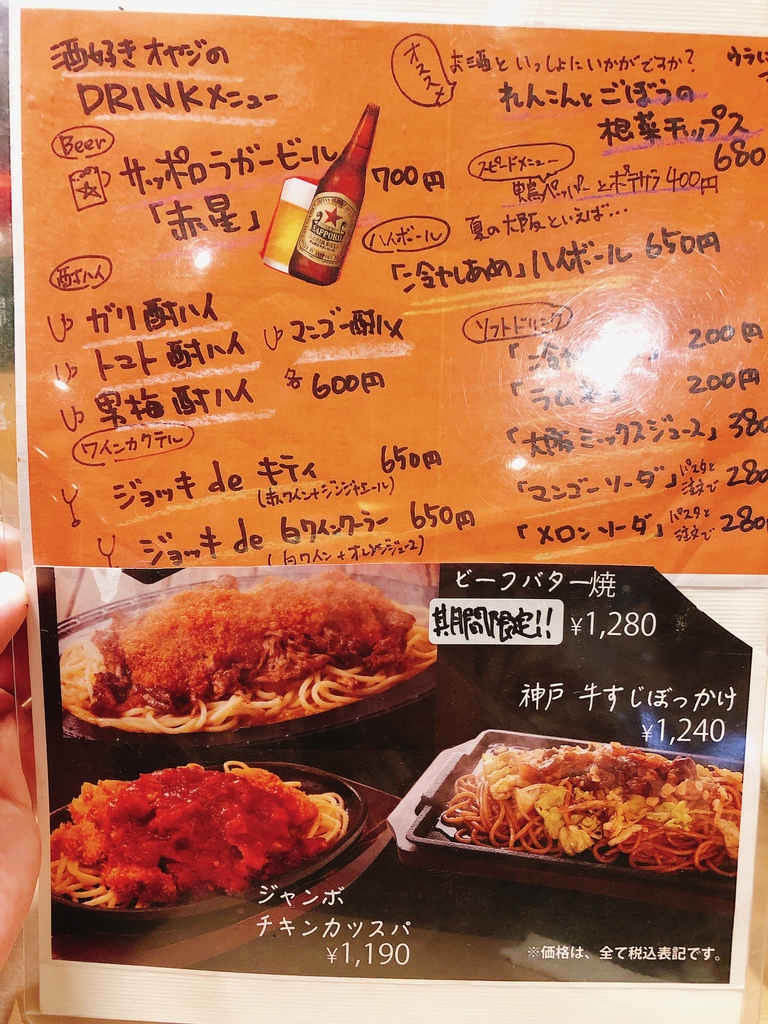 酒好きオヤジの
DRINKメニュー
Beer
サッポロラガービール
「赤星」
700円
SAPPORO
酎ハイ
ガリ酎ハイ
トマト酎ハイ
黒梅酎ハイ
マンゴー酎ハイ
各600円
ワインカクテル
ジョッキdeキティ 650円
(赤ワイン+ジンジャエール)
ジョッキde白ワインクーラー 650円
(白ワイン+オレンジジュース)
オススメ
お酒といっしょにいかがですか?
れんこんとごぼうの
根菜チップス
680
スピードメニュー
鴨パッパーとポテサラ400円
夏の大阪といえば…
ハイボール
「冷やしあめ」ハイボール 650円
ソフトドリンク
「冷や 200円
「ラムネ」 200円
「大阪ミックスジュース」 380
「マンゴーソーダ」 パスタと注文で 280
「メロンソーダ」 パスタと注文で 280
ビーフバター焼
期間限定!! ¥1,280
神戸 牛すじぼっかけ
¥1,240
ジャンボ
チキンカツスパ
¥1,190
※価格は、全て税込表記です。